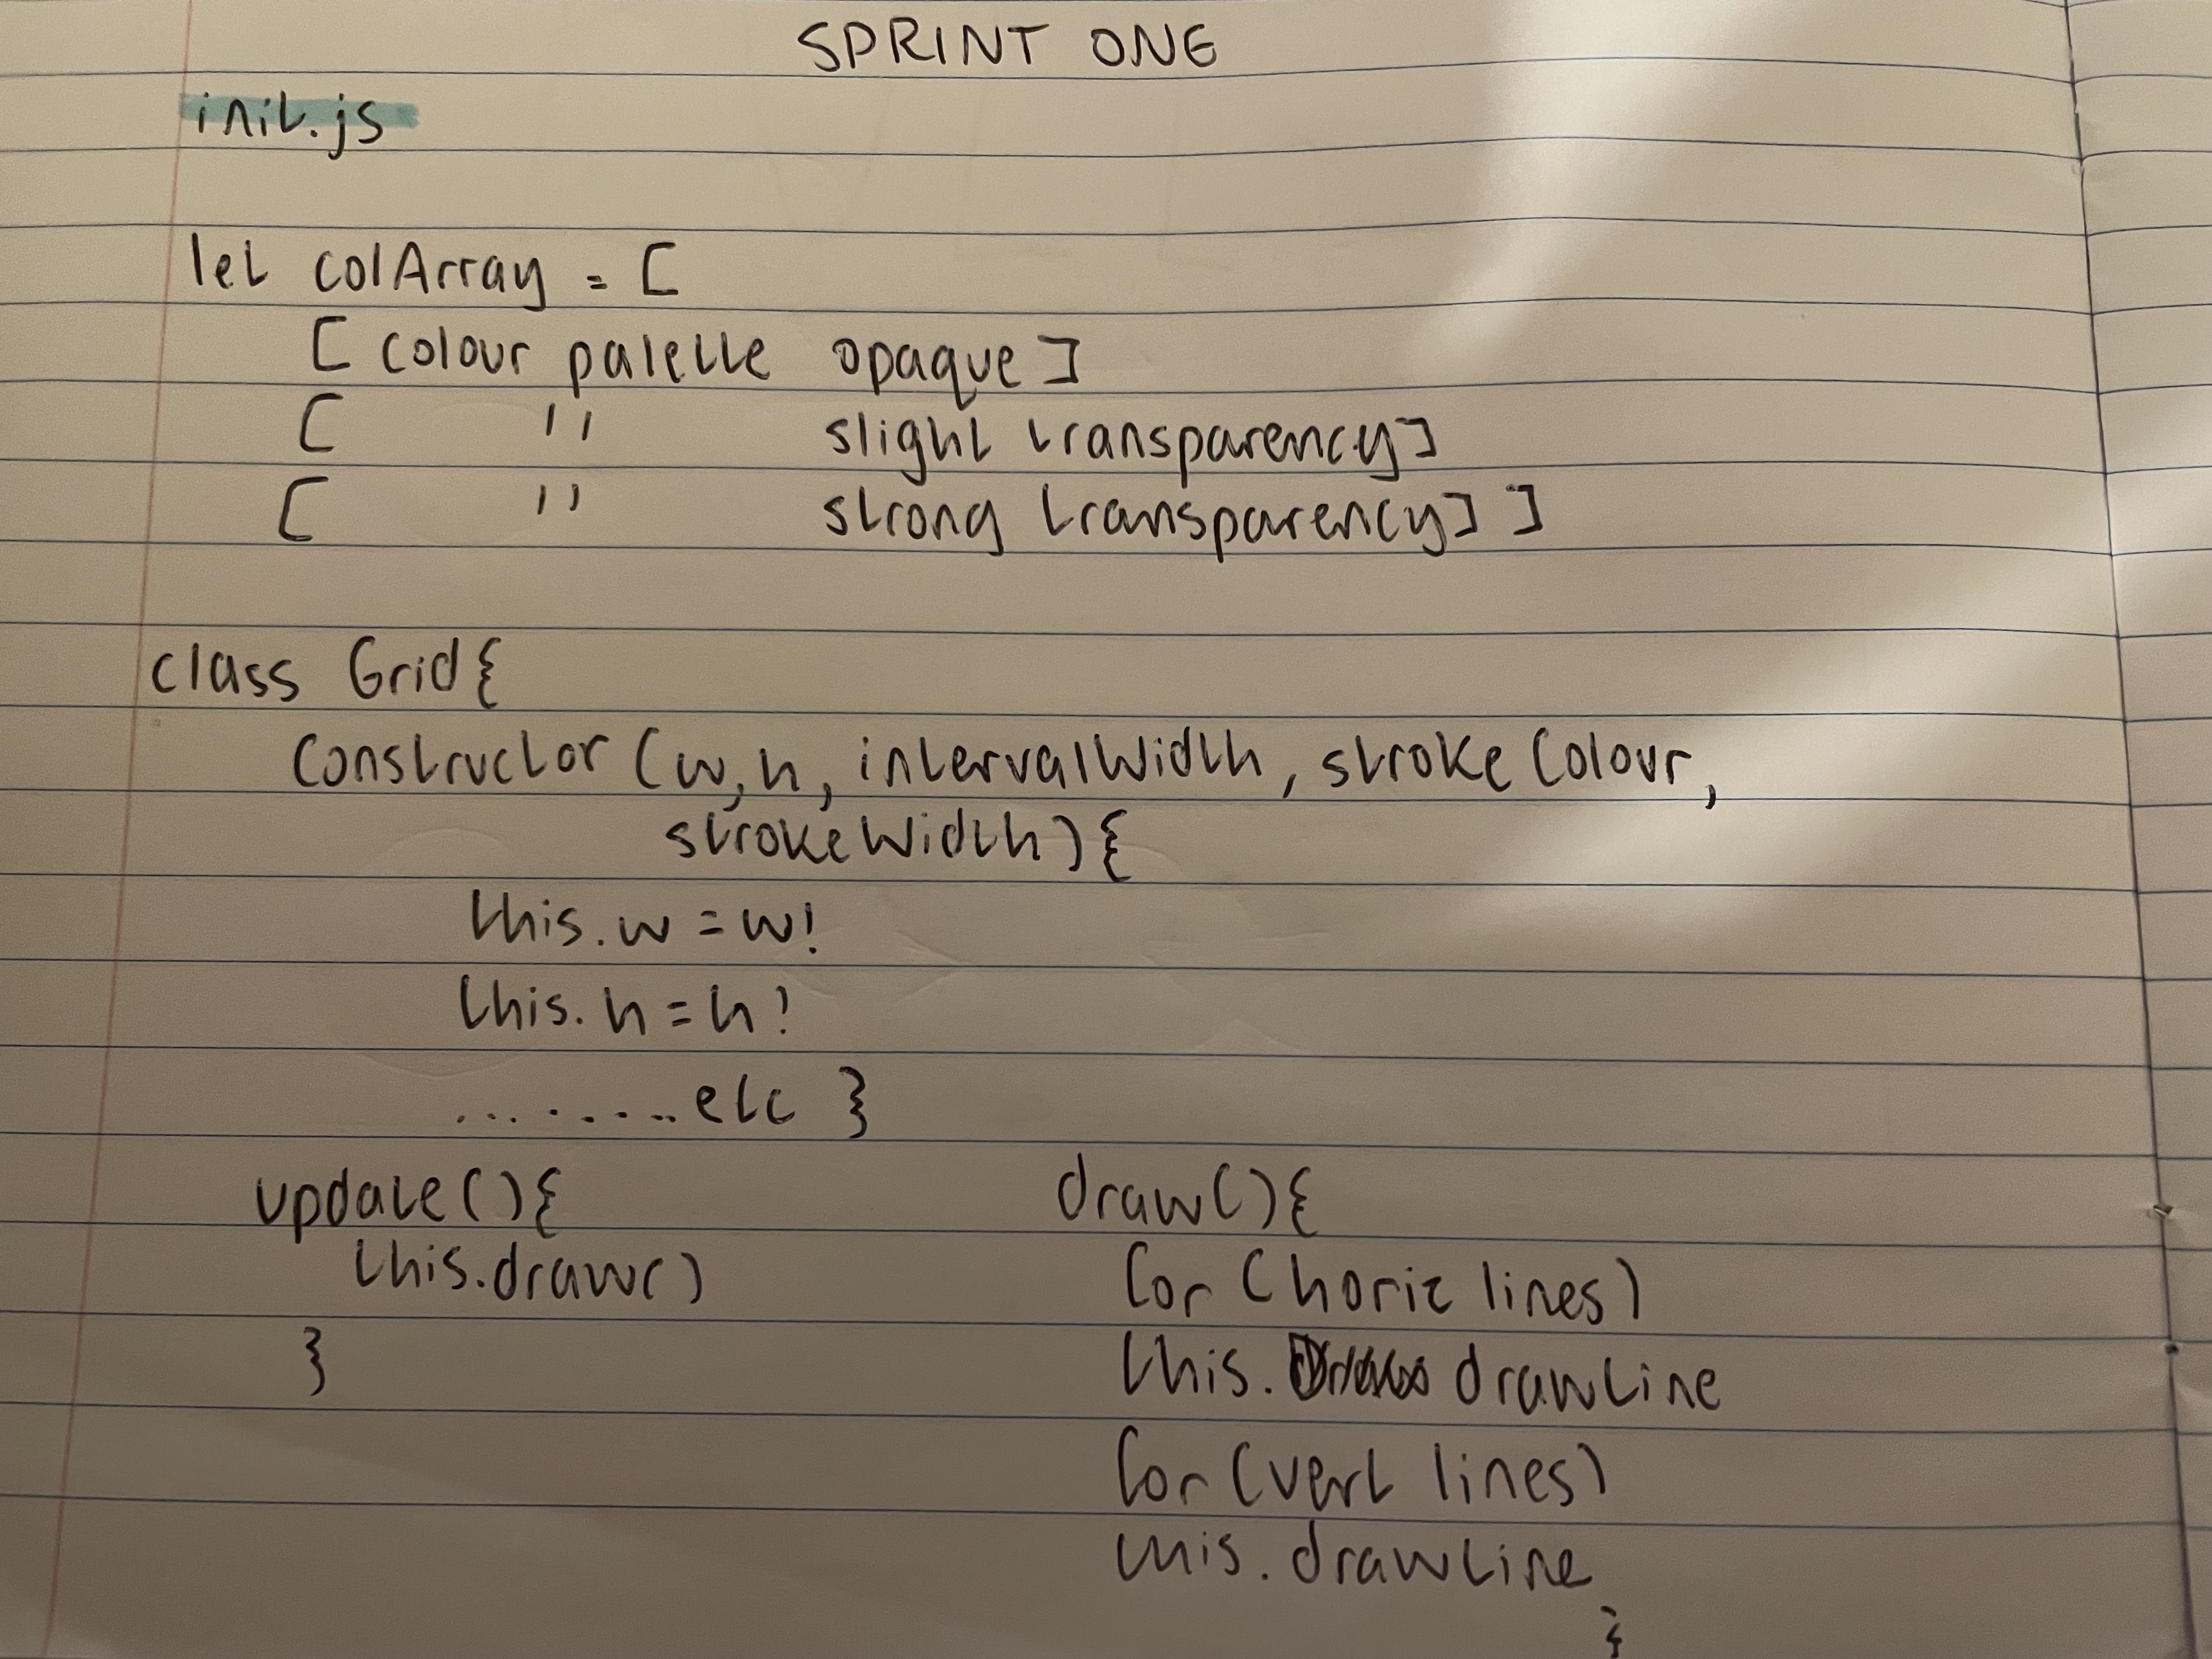 SPRINT ONE
init.js
let colArray = [
[ colour palette opaque ]
[ " slight transparency]
[ " strong transparency] ]
class Grid{
constructor (w,h, intervalWidth, strokeColour,
strokeWidth) {
this.w = w!
this.h = h!
.........etc }
update () {
this.draw()
}
draw() {
for (horiz lines)
this. drawLine
for (vert lines)
this. drawLine
}